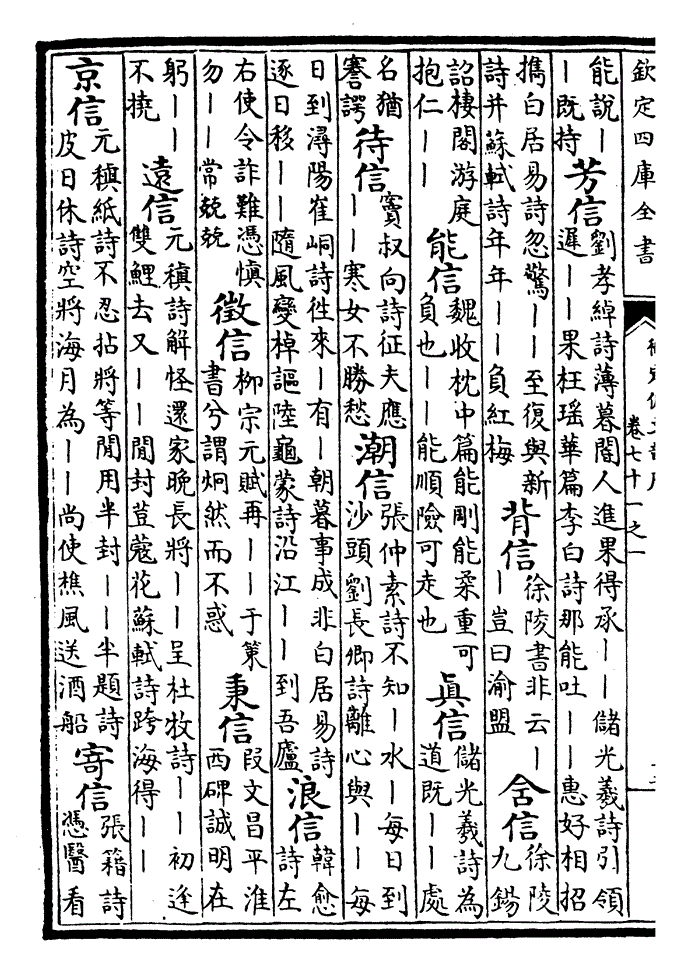 欽定四庫全書
卷七十一之一
能說｜
｜既持
芳信
劉孝綽詩薄暮閽人進果得承｜｜儲光羲詩引領
遲｜｜果枉瑤華篇李白詩那能吐｜｜惠好相招
攜白居易詩忽驚｜｜至復與新
詩并蘇軾詩年年｜｜負紅梅
背信
徐陵書非云｜
｜豈曰渝盟
舍信
徐陵
九錫
詔棲閣游庭
抱仁｜｜
能信
魏收枕中篇能剛能柔重可
負也｜｜能順險可走也
眞信
儲光羲詩為
道既｜｜處
名猶
謇諤
待信
竇叔向詩征夫應
｜｜寒女不勝愁
潮信
張仲素詩不知｜水｜每日到
沙頭劉長卿詩離心與｜｜每
日到潯陽崔峒詩徃來｜有｜朝暮事成非白居易詩
逐日移｜｜隨風變棹謳陸龜蒙詩沿江｜｜到吾廬
浪信
韓愈
詩左
右使令詐難憑慎
勿｜｜常兢兢
徵信
柳宗元賦再｜｜于策
書兮謂炯然而不惑
秉信
段文昌平淮
西碑誠明在
躬｜｜
不撓
遠信
元稹詩解怪還家晚長將｜｜呈杜牧詩｜｜初逢
雙鯉去又｜｜閒封荳蔻花蘇軾詩跨海得｜｜
京信
元稹紙詩不忍拈將等閒用半封｜｜半題詩
皮日休詩空將海月為｜｜尚使樵風送酒船
寄信
張籍詩
憑醫看